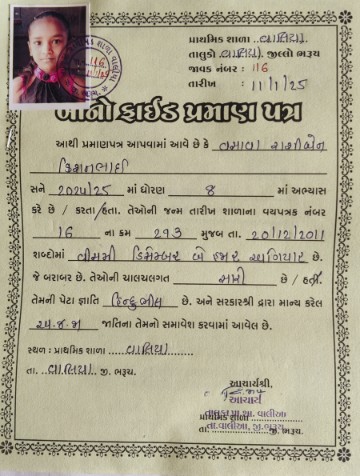 પ્રાથમિક શાળા વાલિયા
તાલુકો વાલિયા જીલ્લો ભરૂચ
જાવક નંબર : ૧૧૬
તારીખ : 11/1/25
બોનો ફાઈડ પ્રમાણ પત્ર
આથી પ્રમાણપત્ર આપવામાં આવે છે કે વસાવા
કિશનભાઈ
સને 2024/25 માં ધોરણ 8 માં અભ્યાસ
કરે છે / કરતા/હતા. તેઓની જન્મ તારીખ શાળાના વયપત્રક નંબર
16 ના ક્રમ 293 મુજબ તા. 20/12/2011
શબ્દોમાં વીસમી ડિસેમ્બર બે હજાર અગિયાર છે.
જે બરાબર છે. તેઓની ચાલચલગત સારી છે / હતી.
તેમની પેટા જ્ઞાતિ હિન્દુભીલ છે. અને સરકારશ્રી દ્વારા માન્ય કરેલ
અ.જ.જા જાતિના તેમનો સમાવેશ કરવામાં આવેલ છે.
સ્થળ : પ્રાથમિક શાળા વાલિયા
તા. વાલિયા જી. ભરૂચ.
આચાર્યશ્રી.
આચાર્ય
પ્રાથમિક શાળા
તાલુકા પ્રા.શા. વાલીઆ
તા. વાલીઆ, જી. ભરૂચ
જી. ભરૂચ.